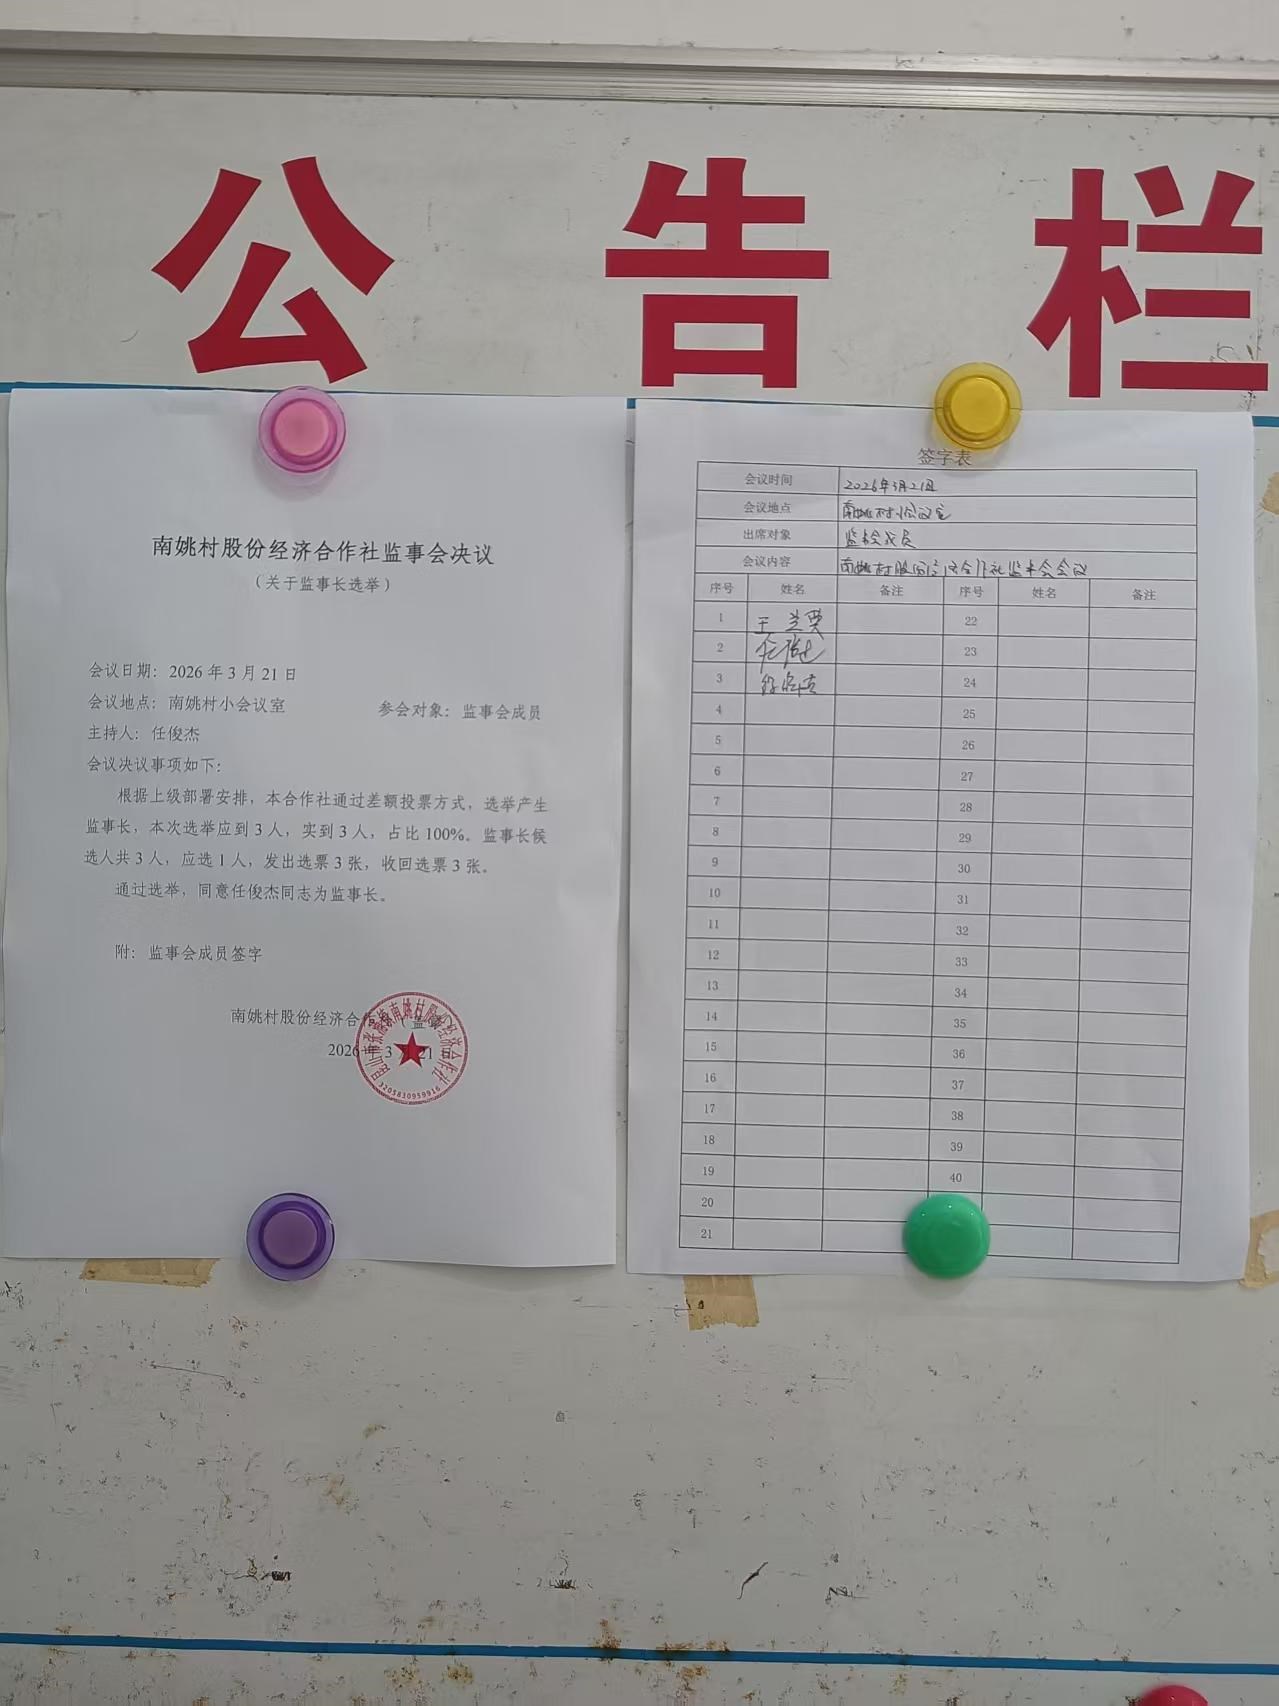 公告栏
南姚村股份经济合作社监事会决议
（关于监事长选举）
会议日期：2026年3月21日
会议地点：南姚村小会议室 参会对象：监事会成员
主持人：任俊杰
会议决议事项如下：
根据上级部署安排，本合作社通过差额投票方式，选举产生
监事长，本次选举应到3人，实到3人，占比100%。监事长候
选人共3人，应选1人，发出选票3张，收回选票3张。
通过选举，同意任俊杰同志为监事长。
附：监事会成员签字
南姚村股份经济合作社（监事
2026年3月21日
昆山市张浦镇南姚村股份经济合作社
3205830959916
签字表
会议时间 2026年3月21日
会议地点 南姚村小会议室
出席对象 监事会成员
会议内容 南姚村股份经济合作社监事会会议
序号 姓名 备注 序号 姓名 备注
1 王 22
2 23
3 24
4 25
5 26
6 27
7 28
8 29
9 30
10 31
11 32
12 33
13 34
14 35
15 36
16 37
17 38
18 39
19 40
20
21